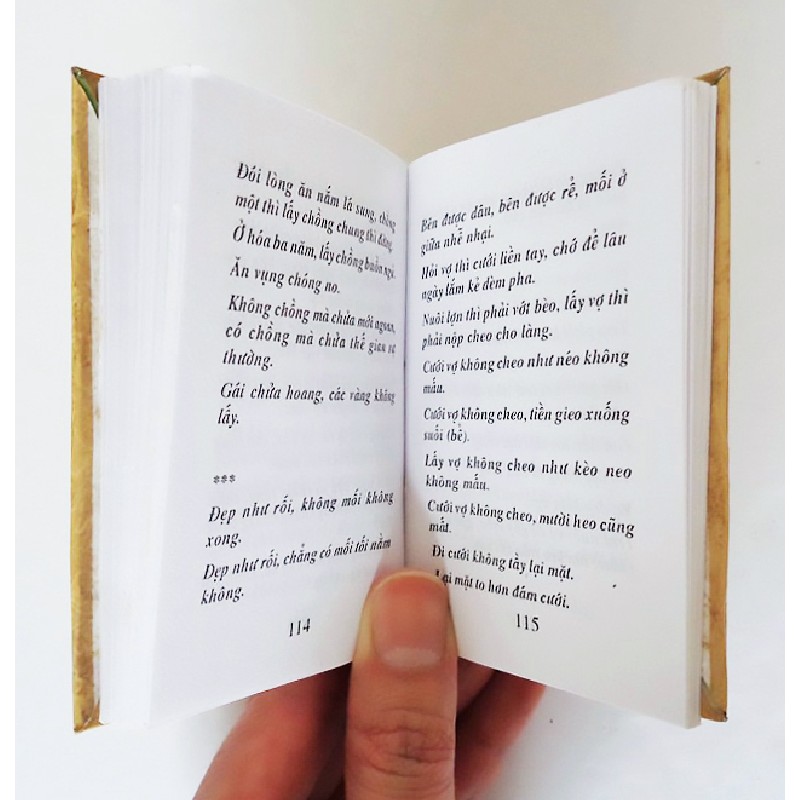 Đói lòng ăn nắm lá sung, chồng
một thì lấy chồng chung thì đừng.
Ở hóa ba năm, lấy chồng buổn ngủ.
Ăn vụng chóng no.
Không chồng mà chửa mới ngoan,
có chồng mà chửa thế gian sự
thường.
Gái chửa hoang, các vàng không
lấy.
***
Đẹp như rối, không mối không
xong.
Đẹp như rối, chẳng có mối tối nằm
không.
114
Bên được đâu, bên được rể, mối ở
giữa nhễ nhại.
Hỏi vợ thì cưới liền tay, chớ để lâu
ngày lắm kẻ dèm pha.
Nuôi lợn thì phải vớt bèo, lấy vợ thì
phải nộp cheo cho làng.
Cưới vợ không cheo như néo không
mấu.
Cưới vợ không cheo, tiền gieo xuống
suối (bể).
Lấy vợ không cheo như kèo neo
không mấu.
Cưới vợ không cheo, mười heo cũng
mất.
Đi cưới không tầy lại mặt.
Lại mặt to hơn đám cưới.
115